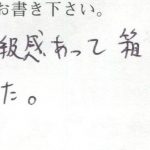 お書き下さい。
級感あって 箱
た。